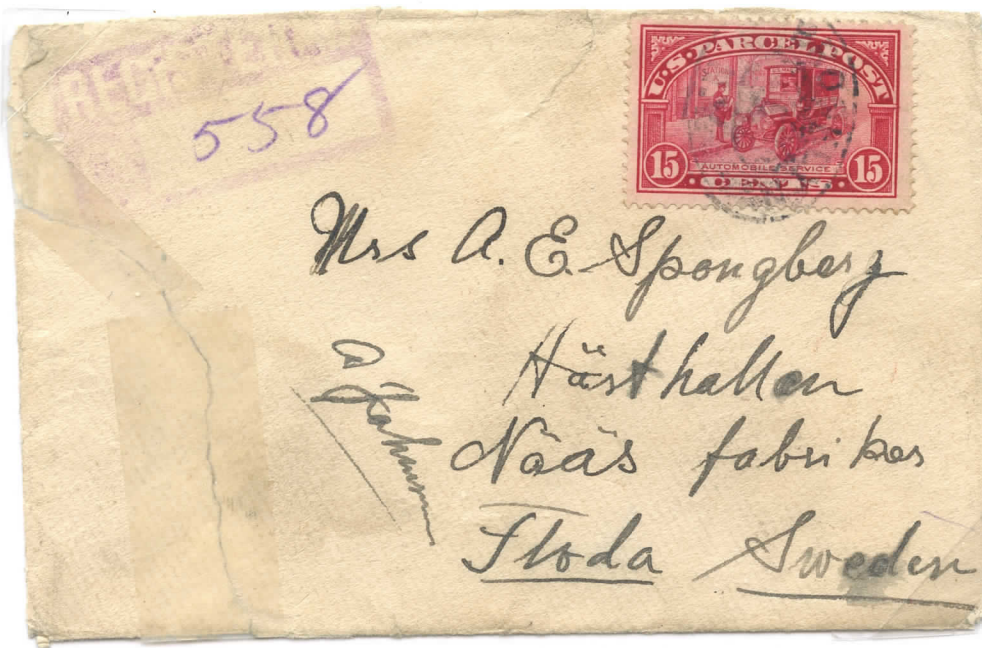 REGISTERED
558
U.S. PARCEL POST
15 AUTOMOBILE SERVICE 15
CENTS
Mrs A. E. Spongberg
Hästhallen
Nääs fabriker
Floda Sweden